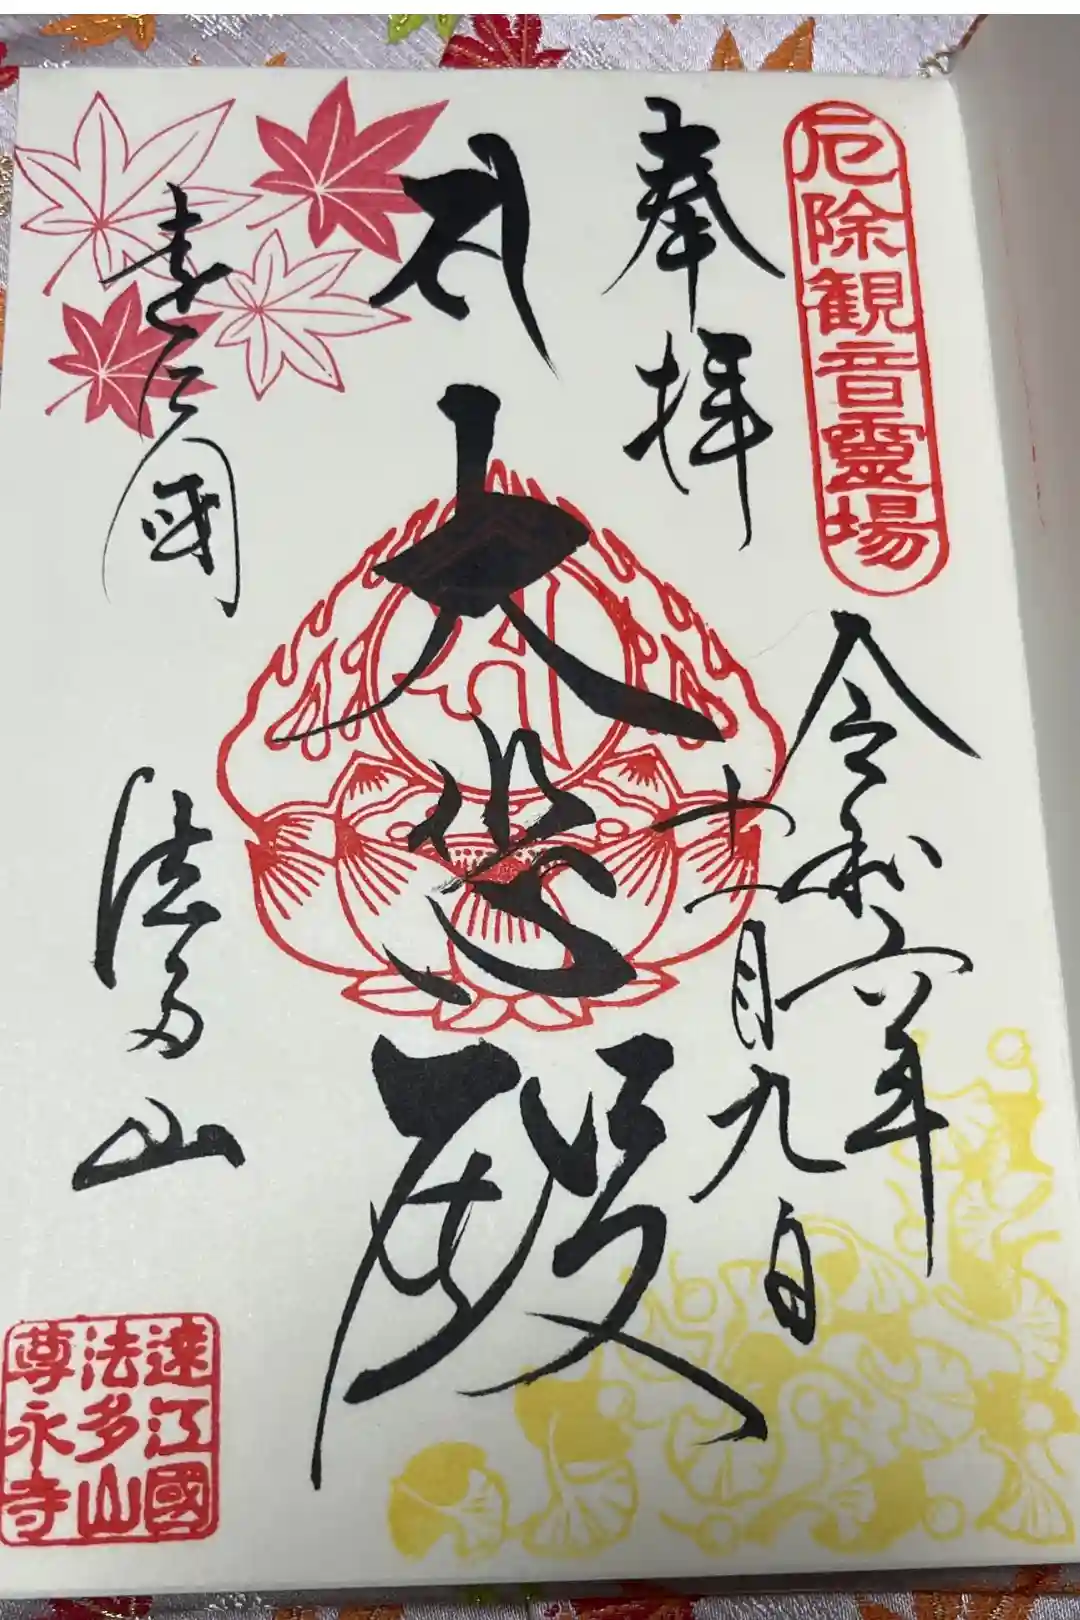 厄除観音靈場
奉拝
令和六年
十一月九日
大悲殿
遠江國
法多山
遠江國
法多山
尊永寺